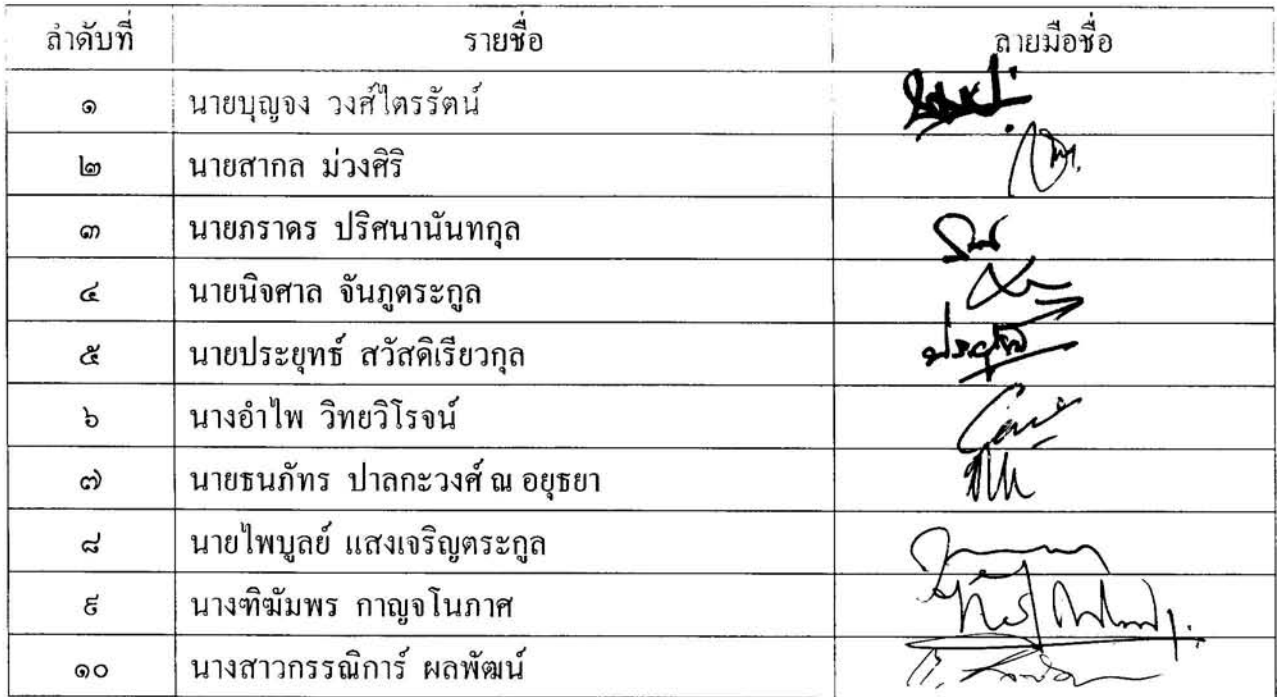 ลำดับที่ รายชื่อ ลายมือชื่อ
๑ นายบุญจง วงศ์ไตรรัตน์
๒ นายสากล ม่วงศิริ
๓ นายภราดร ปริศนานันทกุล
๔ นายนิจศาล จันภูตระกูล
๕ นายประยุทธ์ สวัสดิเรียวกุล
๖ นางอำไพ วิทยวิโรจน์
๗ นายธนภัทร ปาลกะวงศ์ ณ อยุธยา
๘ นายไพบูลย์ แสงเจริญตระกูล
๙ นางฑิฆัมพร กาญจโนภาศ
๑๐ นางสาวกรรณิการ์ ผลพัฒน์